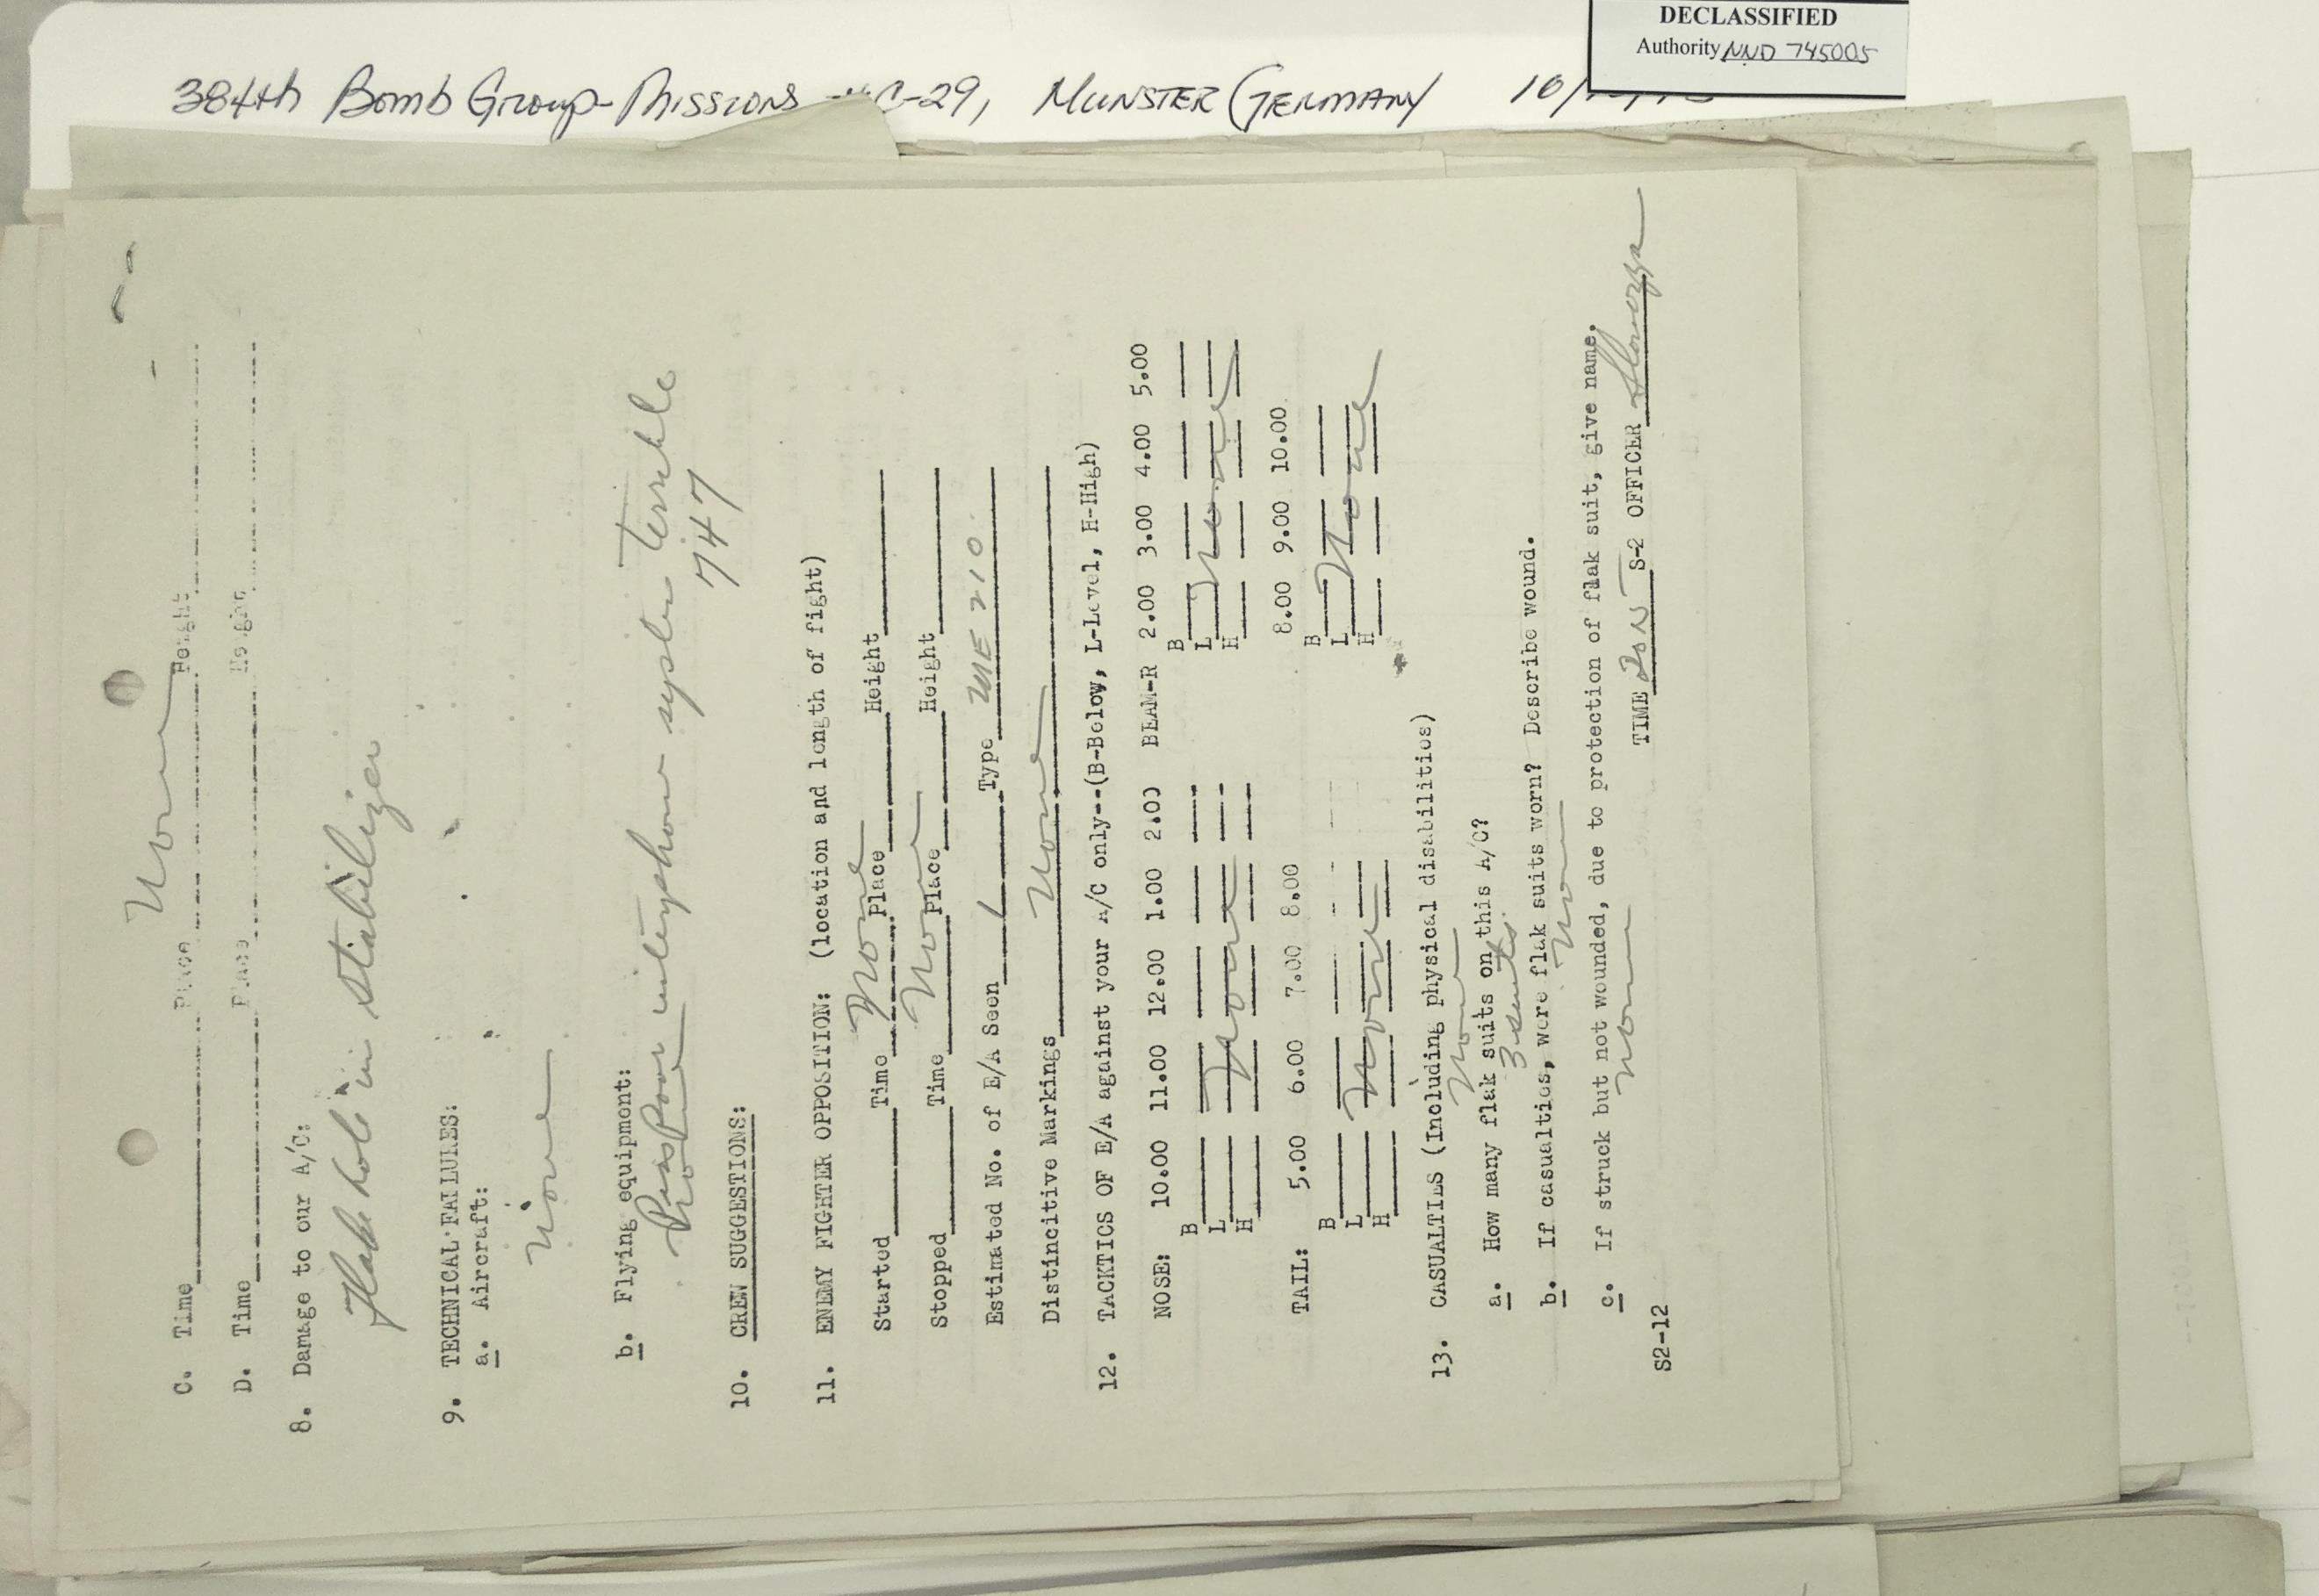 DECLASSIFIED
Authority NND 745005
384th Bomb Group-Missions C-29, MUNSTER GERMANY 10/
None
C. Time Place Height
D. Time Place Height
8. Damage to our A/C:
Flak hole in stabilizer
9. TECHNICAL FAILURES:
a. Aircraft:
None
b. Flying equipment:
Poor interphone system terrible
747
10. CREW SUGGESTIONS:
11. ENEMY FIGHTER OPPOSITION: (location and length of fight)
Started Time None Place Height
Stopped Time None Place Height
Estimated No. of E/A Seen 1 Type ME 210
Distincitive Markings None
12. TACKTICS OF E/A against your A/C only--(B-Below, L-Level, H-High)
NOSE: 10.00 11.00 12.00 1.00 2.00 BEAM-R 2.00 3.00 4.00 5.00
B B
L None L None
H H
TAIL: 5.00 6.00 7.00 8.00 8.00 9.00 10.00
B B
L None L None
H H
13. CASUALTIES (Including physical disabilities)
None
a. How many flak suits on this A/C?
3 suits
b. If casualties, were flak suits worn? Describe wound.
None
c. If struck but not wounded, due to protection of flak suit, give name.
None
TIME S-2 OFFICER
S2-12